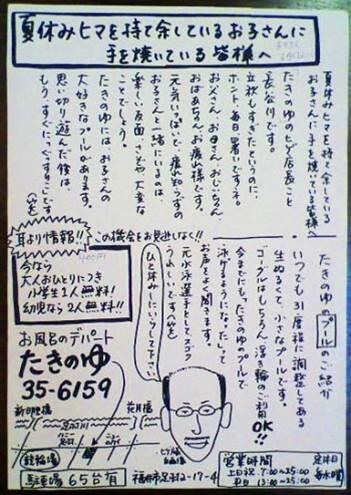 夏休みヒマを持て余しているお子さんに
手を焼いている皆様へ
夏休みヒマを持て余している
お子さんに手を焼いている皆様へ
たきのゆのヒゲ店長こと
長谷川です。
立秋もすぎたというのに、
ホント、毎日暑いですネ。
お父さん、お母さん、おじいちゃん、
おばあちゃん、お疲れ様です。
元気いっぱいで疲れ知らずの
お子さんと一緒にいるのは
楽しい反面、さぞや大変な
ことでしょう。
たきのゆには、お子さんの
大好きなプールがあります。
思い切り遊んだ後は、
もうすぐにぐっすりでーすです
(笑)
たきのゆのプールのご紹介
いつでも31度程に調整してある
生ぬるくて、小さなプールです。
ゴーグルはもちろん、浮き輪のご利用
OK!!
今までにも、たきのゆのプールで
泳げるようになった。だって
お声をよく聞きます。
元水泳選手としてスゴク
うれしいです(笑)
ひと休みにいらして下さい。
耳より情報!!
この機会をお見逃しなく!!
今なら
大人おひとりにつき
小学生1人無料!!
幼児なら2人無料!!
お風呂のデパート
たきのゆ
35-6159
新明里橋
花月橋
足羽川
競輪場
駐車場 65台有
福井市足羽2-17-4
営業時間
土日祝 7:00~25:00
平日 13:00~25:00
定休日
毎水曜